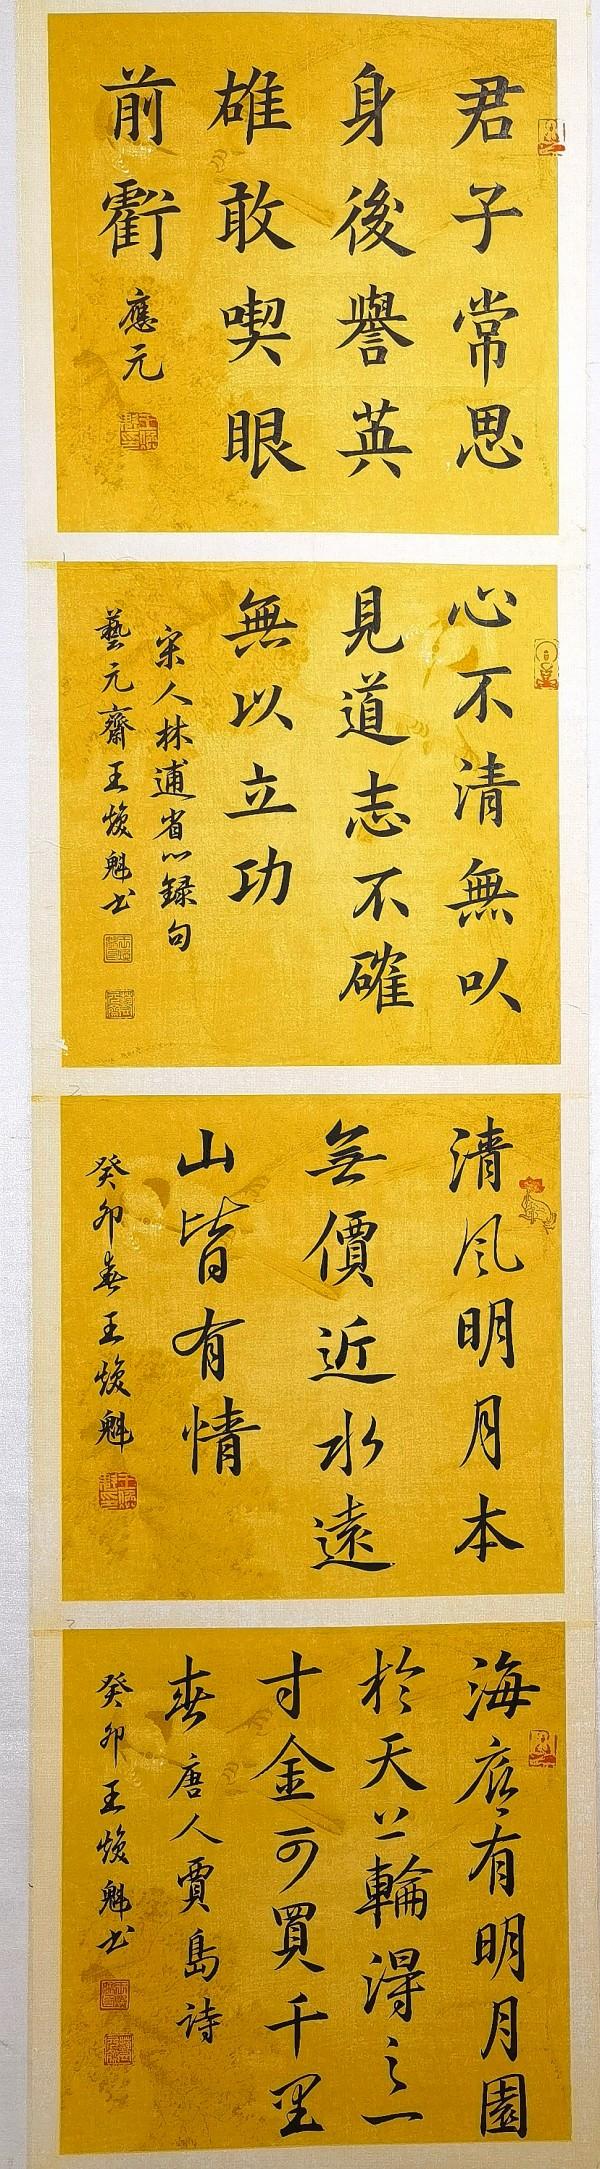 君子常思
身後譽英
雄敢喫眼
前虧
應元
心不清無以
見道志不確
無以立功
宋人林逋省心錄句
藝元齋王煥魁书
清风明月本
無價近水遠
山皆有情
癸卯春王煥魁
海底有明月園
於天上輪得之一
寸金可買千里
春唐人賈島诗
癸卯王煥魁书